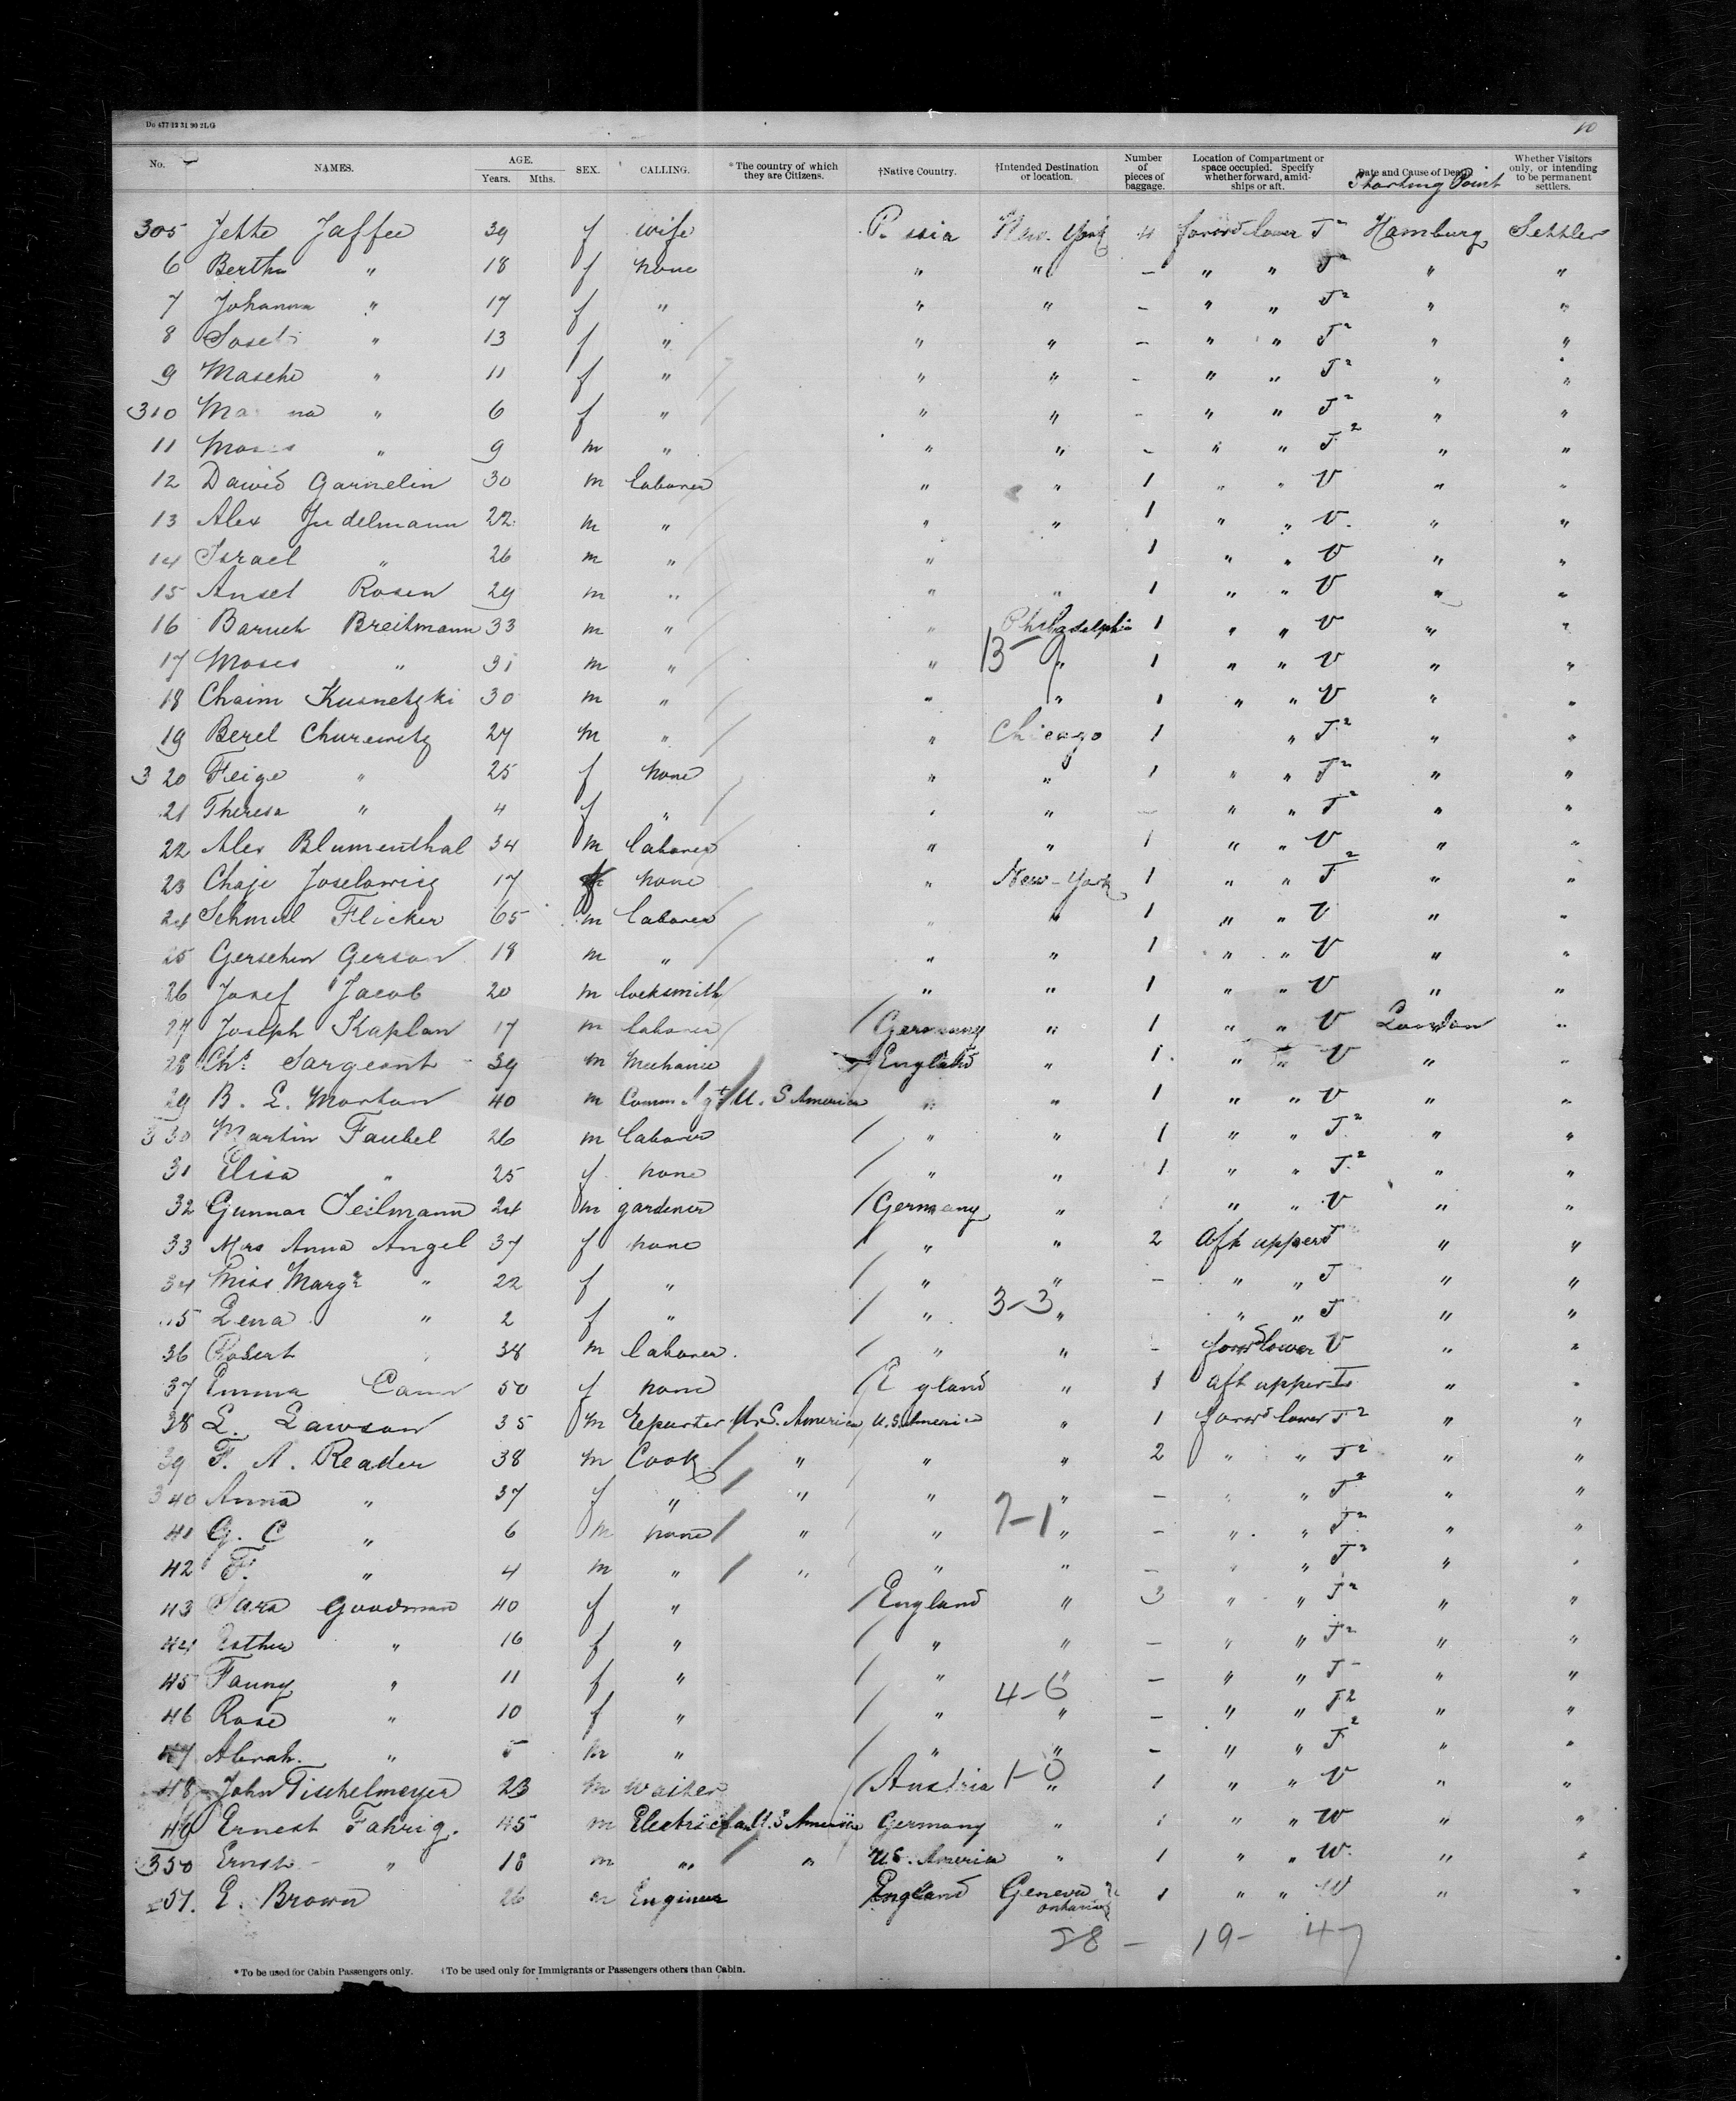 Do 477 12 31 90 2LG
10
No. NAMES. AGE. Years. Mths. SEX. CALLING. * The country of which they are Citizens. †Native Country. †Intended Destination or location. Number of pieces of baggage. Location of Compartment or space occupied. Specify whether forward, amidships or aft. Date and Cause of Death. Starting Point Whether Visitors only, or intending to be permanent settlers.
305 Jette Jaffee 39 f wife New-York 4 forwd lower J2 Hamburg Settler
6 Bertha " 18 f none " " - " " J2 " "
7 Johanna " 17 f " " " - " " J2 " "
8 " 13 f " " " - " " J2 " "
9 Masche " 11 f " " " - " " J2 " "
310 " 6 f " " " - " " J2 " "
11 Moses " 9 m " " " - " " J2 " "
12 Dawid Garnelin 30 m laborer " " 1 " " V " "
13 Alex Judelmann 22 m " " " 1 " " V. " "
14 Israel " 26 m " " 1 " " V " "
15 Ansel Rosen 29 m " " " 1 " " V " "
16 Baruch Breitmann 33 m " " Philadelphia 1 " " V " "
17 Moses " 31 m " " 13 " 1 " " V " "
18 Chaim Kusnetzki 30 m " " " 1 " " V " "
19 Berel Churewitz 27 m " " Chicago 1 " J2 " "
320 Feige " 25 f none " " 1 " " J2 " "
21 Theresa " 4 f " " " - " " J2 " "
22 Alex Blumenthal 34 m laborer " " 1 " " V " "
23 Chaje Joselowicz 17 f none " New-York 1 " " J2 " "
24 Schmul Flicker 65 m laborer " " 1 " " V " "
25 Gerschen Gerson 18 m " " " 1 " " V " "
26 Josef Jacob 20 m locksmith " " 1 " " V " "
27 Joseph Kaplan 17 m laborer Germany " 1 " " V London "
28 Chs. Sargeant 39 m Mechanic England " 1 " " V " "
29 B. L. Morton 40 m U.S America " " 1 " " V " "
330 Martin Faubel 26 m laborer " " 1 " " J2 " "
31 Elisa " 25 f none " " 1 " " J2 " "
32 Gunnar Teilmann 24 m gardener Germany " " " V " "
33 Mrs Anna Angel 37 f none " " 2 Aft upper J " "
34 Miss Margr " 22 f " " " - " " J " "
35 Lena " 2 f " " 3-3 " " " J " "
36 Robert 38 m laborer. " " - forwd lower V " "
37 Emma 50 f none England " 1 Aft upper " "
38 L. Lawson 35 m U.S. America U.S. America " 1 forwd lower J2 " "
39 F. A. Reader 38 m Cook " " " 2 " " J2 " "
340 Anna " 37 f " " " " - " " J2 " "
41 G. C " 6 m none " " 7-1 " - " " J2 " "
42 F. " 4 m " " " " - " " J2 " "
43 Sara Goodman 40 f " England " 3 " " J2 " "
44 Esther " 16 f " " " - " " J2 " "
45 Fanny " 11 f " " " - " " J " "
46 Rose " 10 f " " 4-6 " - " " J2 " "
47 Abrah. " 5 m " " " - " " J2 " "
48 John Tischelmeyer 23 m waiter Austria 1-0 " 1 " " V " "
49 Ernest Fahrig. 45 m Electrician U.S America Germany " 1 " " W " "
350 Ernst " 18 m " " U.S. America " 1 " " W. " "
51. E. Brown 26 m Engineer England Geneva Ontario 1 " " W " "
28 - 19 - 47
* To be used for Cabin Passengers only. †To be used only for Immigrants or Passengers others than Cabin.